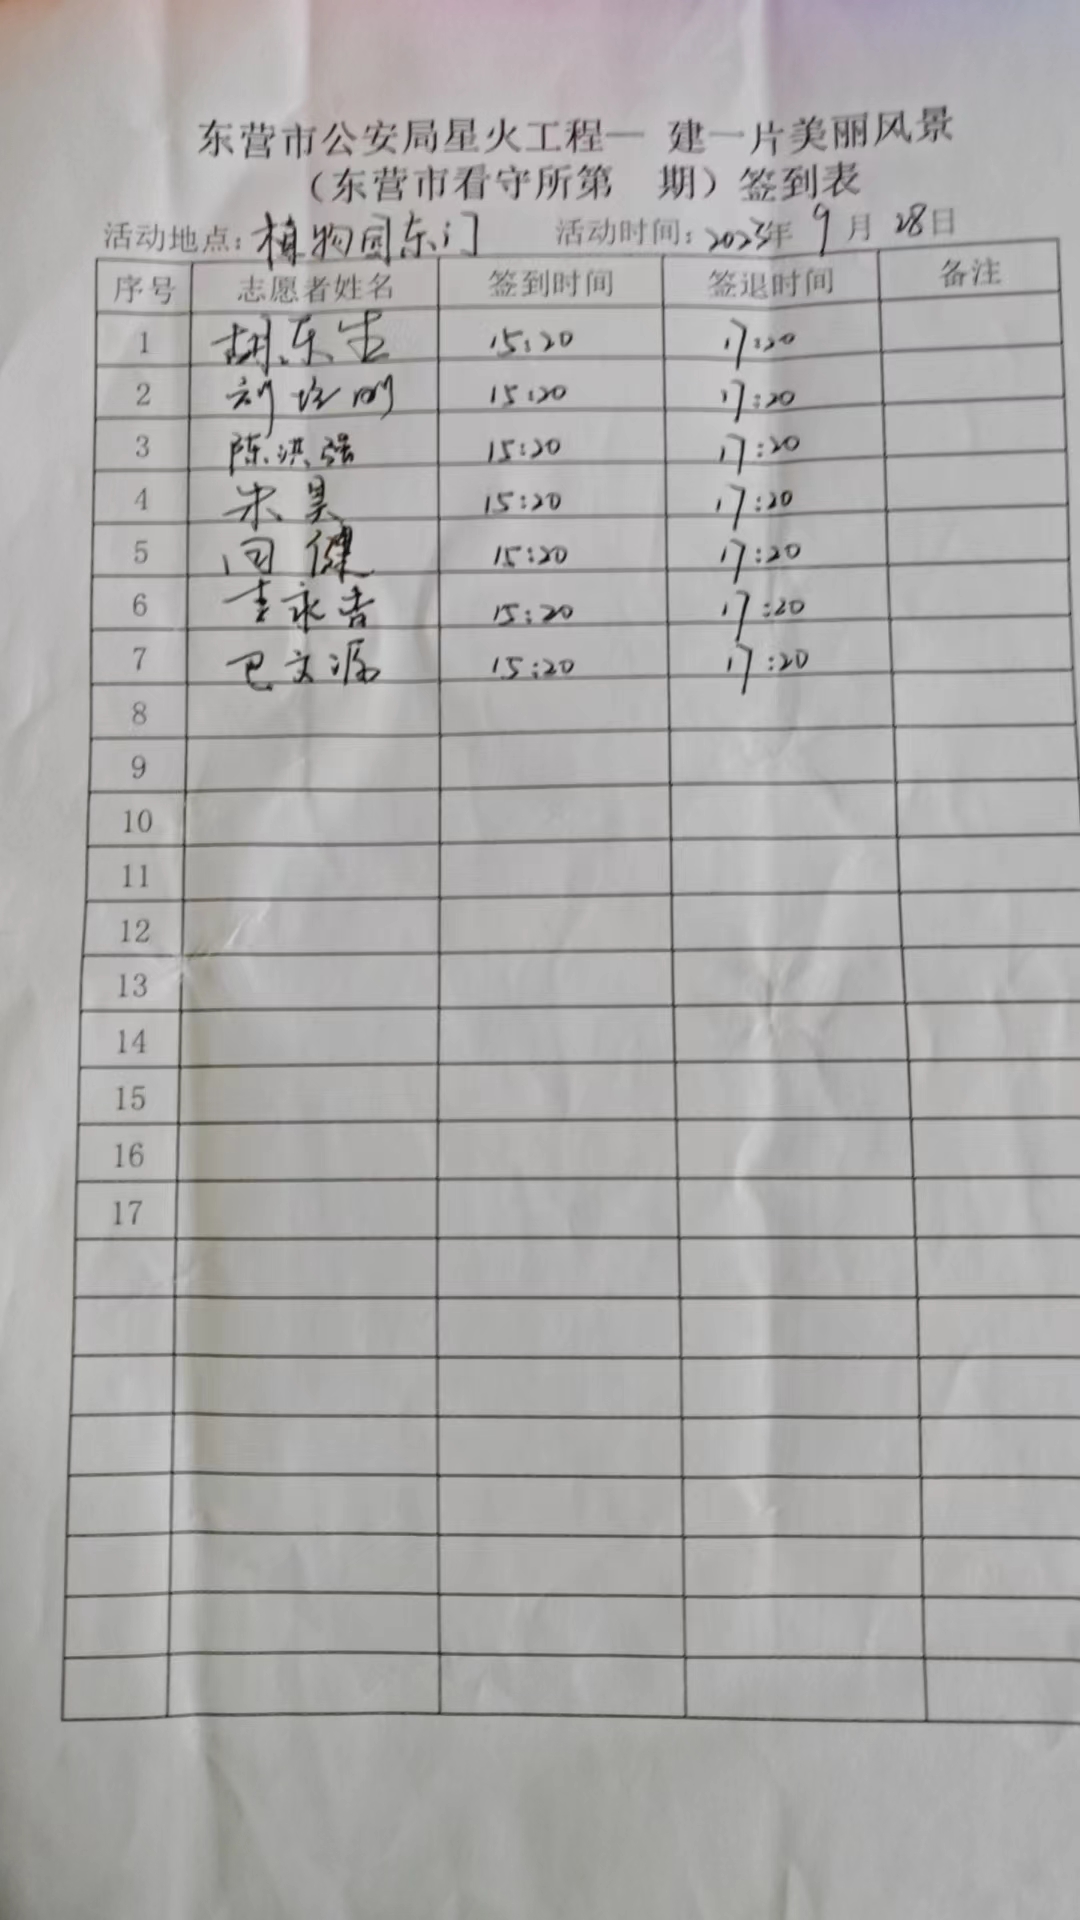 东营市公安局星火工程— 建一片美丽风景
（东营市看守所第 期）签到表
活动地点：植物园东门 活动时间：2023年 9月 28日
序号 志愿者姓名 签到时间 签退时间 备注
1 胡东生 15:20 17:20
2 刘 15:20 17:20
3 陈洪强 15:20 17:20
4 宋昊 15:20 17:20
5 健 15:20 17:20
6 李永吉 15:20 17:20
7 巴文源 15:20 17:20
8
9
10
11
12
13
14
15
16
17